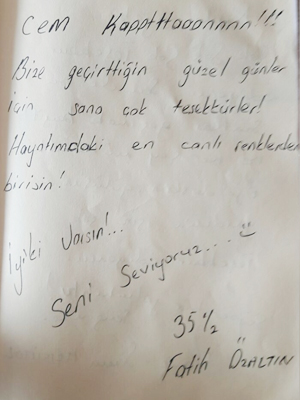 Cem Kappthaaannnn!!!
Bize geçirttiğin güzel günler
için sana çok teşekkürler!
Hayatımdaki en canlı renklerden
birisin!
İyiki varsın!..
Seni Seviyoruz....
35½
Fatih ÖZALTIN